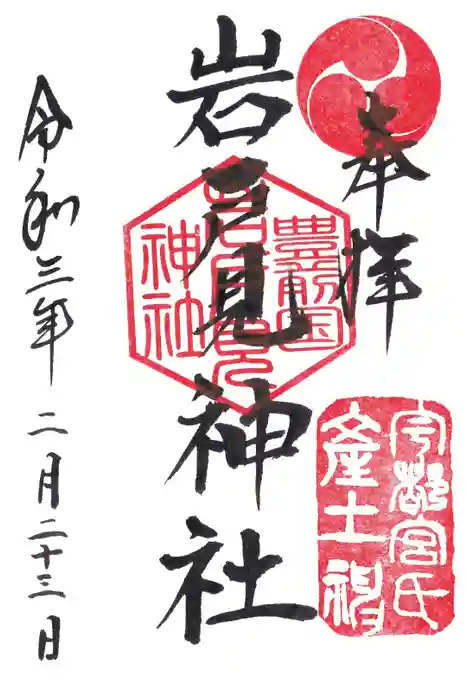 奉拝
宇都宮氏
産土神
豊前国
岩戸見
神社
岩戸見神社
令和三年二月二十三日